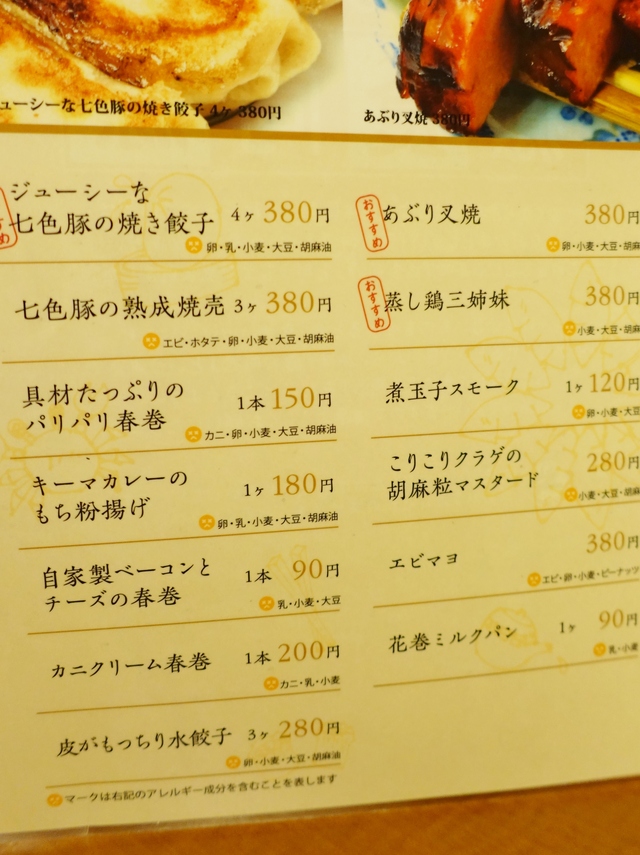 ューシーな七色豚の焼き餃子 4ヶ 380円
あぶり叉焼 380円
ジューシーな
七色豚の焼き餃子 4ヶ 380円
卵・乳・小麦・大豆・胡麻油
七色豚の熟成焼売 3ヶ 380円
エビ・ホタテ・卵・小麦・大豆・胡麻油
具材たっぷりの
パリパリ春巻 1本 150円
カニ・卵・小麦・大豆・胡麻油
キーマカレーの
もち粉揚げ 1ヶ 180円
卵・乳・小麦・大豆・胡麻油
自家製ベーコンと
チーズの春巻 1本 90円
乳・小麦・大豆
カニクリーム春巻 1本 200円
カニ・乳・小麦
皮がもっちり水餃子 3ヶ 280円
卵・小麦・大豆・胡麻油
マークは右記のアレルギー成分を含むことを表します
おすすめ
あぶり叉焼 380円
卵・小麦・大豆・胡麻
おすすめ
蒸し鶏三姉妹 380円
小麦・大豆・胡麻
煮玉子スモーク 1ヶ 120円
卵・小麦・大豆
こりこりクラゲの
胡麻粒マスタード 280円
小麦・大豆・胡麻
エビマヨ 380円
エビ・卵・小麦・ピーナッツ
花巻ミルクパン 1ヶ 90円
乳・小麦